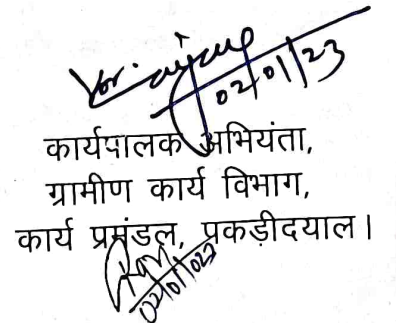 02/01/23
कार्यपालक अभियंता,
ग्रामीण कार्य विभाग,
कार्य प्रमंडल, प्रकड़ीदयाल।
02/01/023